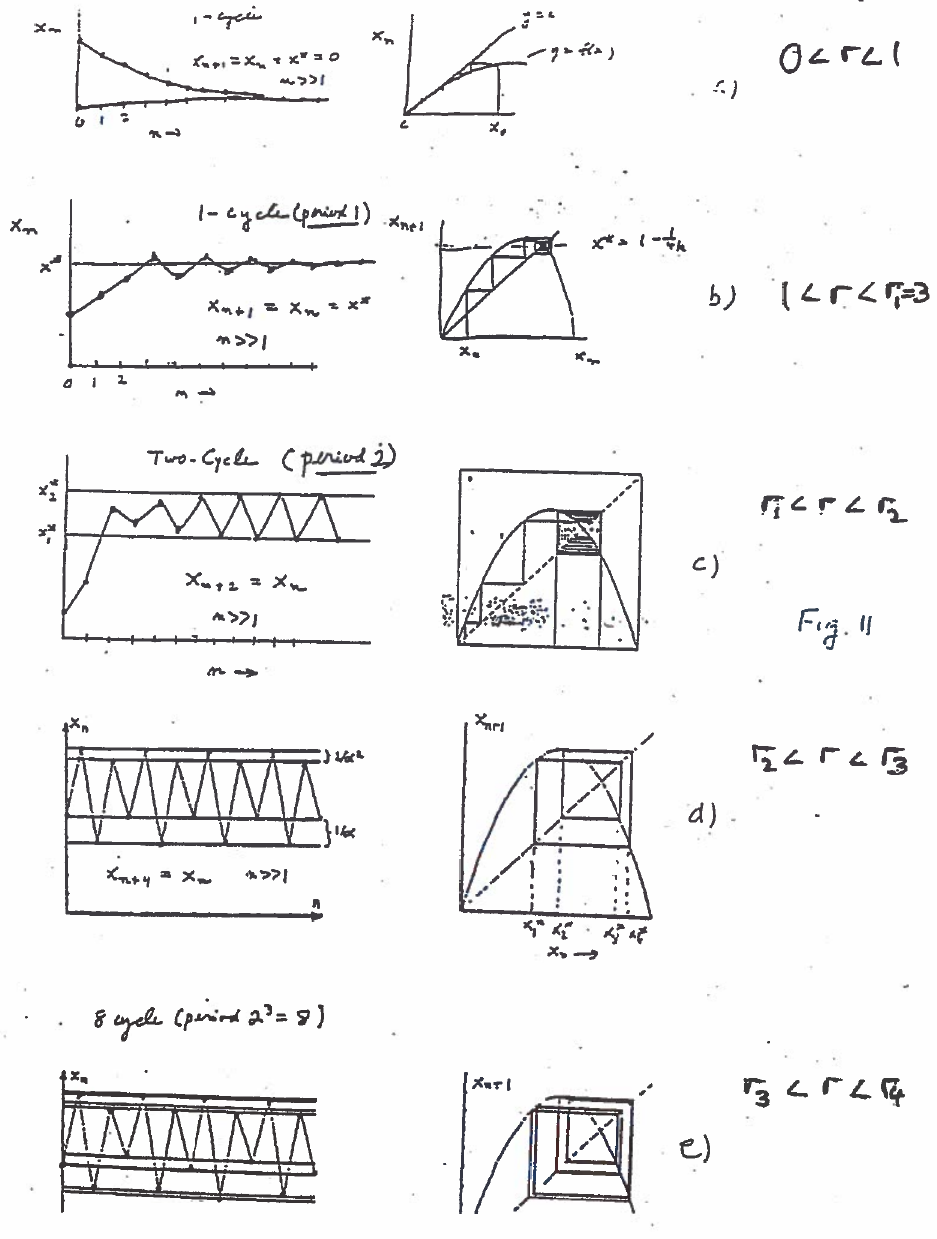 1-cycle
xₙ
xₙ₊₁ = xₙ = x* = 0
n>>1
0 1 2
n →
xₙ
y = x
y = f(x)
x₀
0 < r < 1
1-cycle (period 1)
xₙ
x*
xₙ₊₁ = xₙ = x*
n>>1
0 1 2
n →
xₙ₊₁
x* = 1 - 1/4k
x₀
xₙ
b)
1 < r < r₁=3
Two-Cycle (period 2)
x₂*
x₁*
xₙ₊₂ = xₙ
n>>1
n →
c)
r₁ < r < r₂
Fig. 11
xₙ
1/α²
1/α
xₙ₊₄ = xₙ n>>1
n
xₙ₊₁
x₁* x₂* x₃* x₄*
xₙ →
d)
r₂ < r < r₃
8 cycle (period 2³ = 8)
xₙ
xₙ₊₁
e)
r₃ < r < r₄